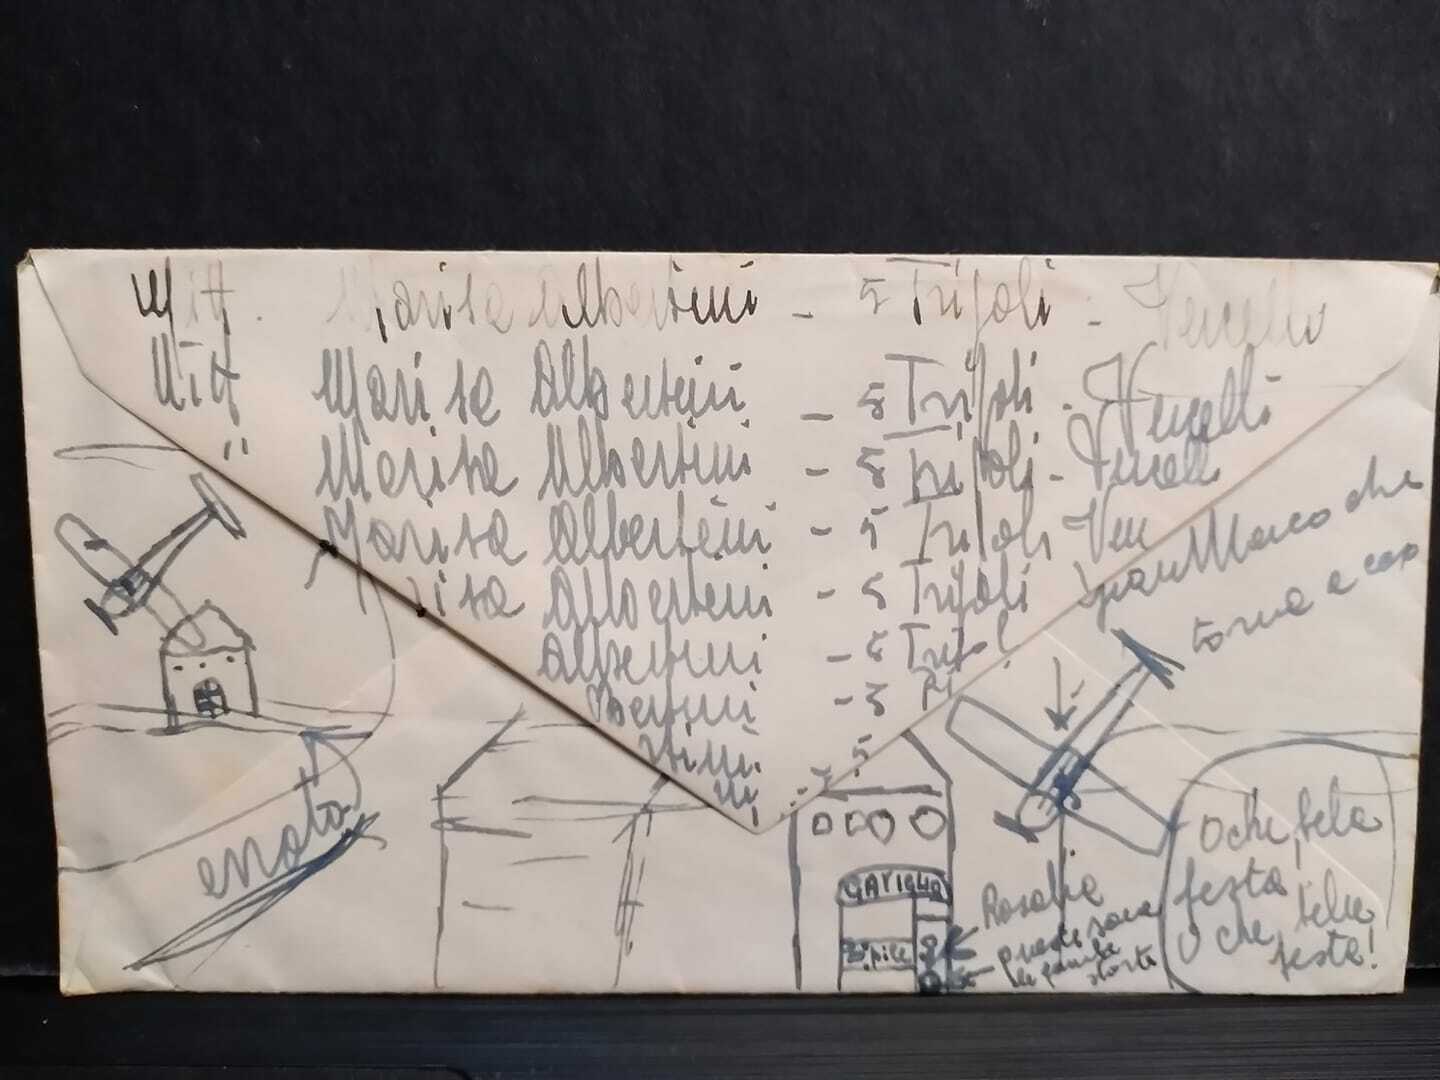 Mitt. Marisa Albertini - 5 Tripoli - Vercelli
Mitt Marisa Albertini - 5 Tripoli - Vercelli
" Marisa Albertini - 5 Tripoli - Vercelli
Marisa Albertini - 5 Tripoli Ver
risa Albertini - 5 Tripoli
Albertini - 5 Tripol
Bertini - 5 Pi
tini - 5
ni
Gian Marco che
torna a casa
errato
GAVIGLIO
Rosalie
queste sono
le gambe
storte
O che bela
festa,
O che bela
festa!